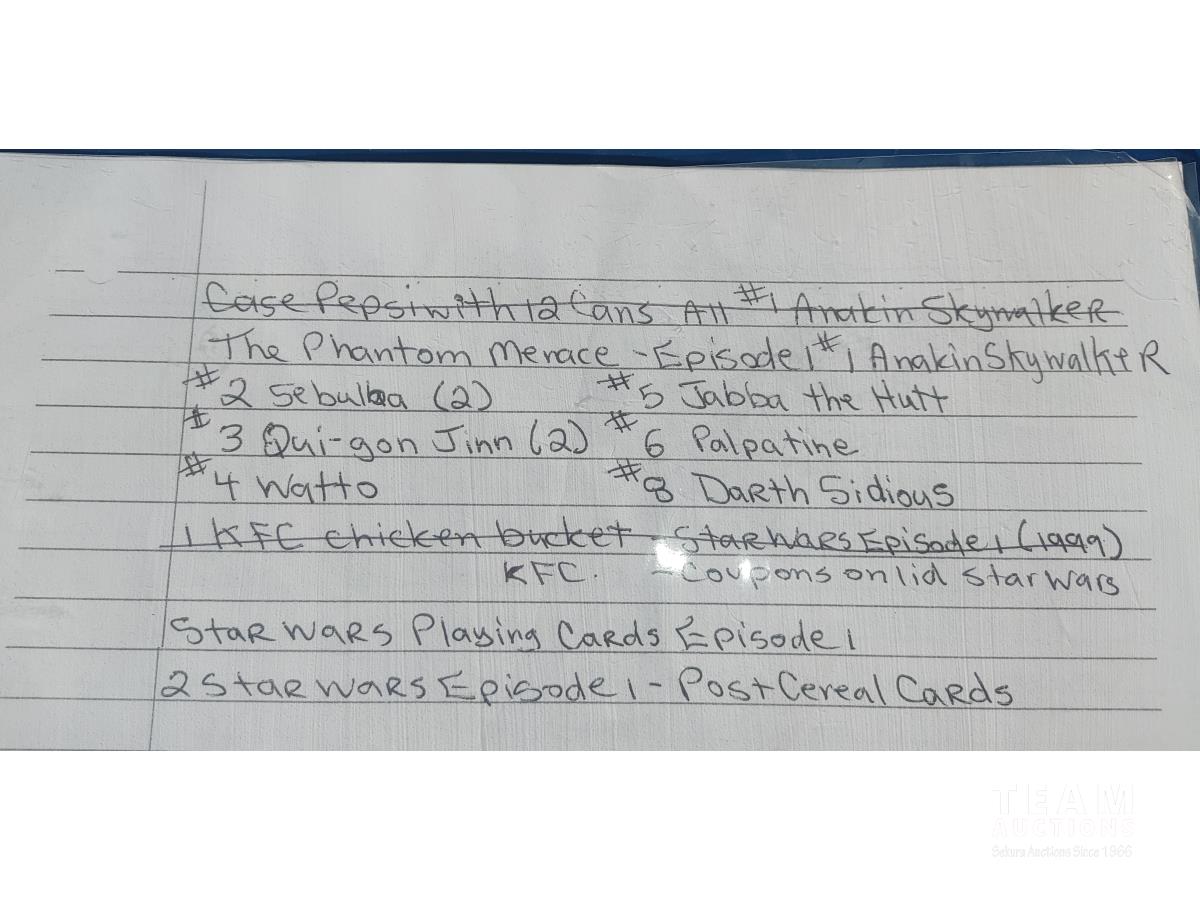 Case Pepsi with 12 Cans All #1 Anakin Skywalker
The Phantom Menace - Episode 1 #1 Anakin Skywalker
#2 Sebulba (2) #5 Jabba the Hutt
#3 Qui-gon Jinn (2) #6 Palpatine
#4 Watto #8 Darth Sidious
1 KFC chicken bucket - Star Wars Episode 1 (1999)
KFC. - Coupons on lid Star Wars
Star Wars Playing Cards Episode 1
2 Star Wars Episode 1 - Post Cereal Cards
TEAM
AUCTIONS
Sekura Auctions Since 1966